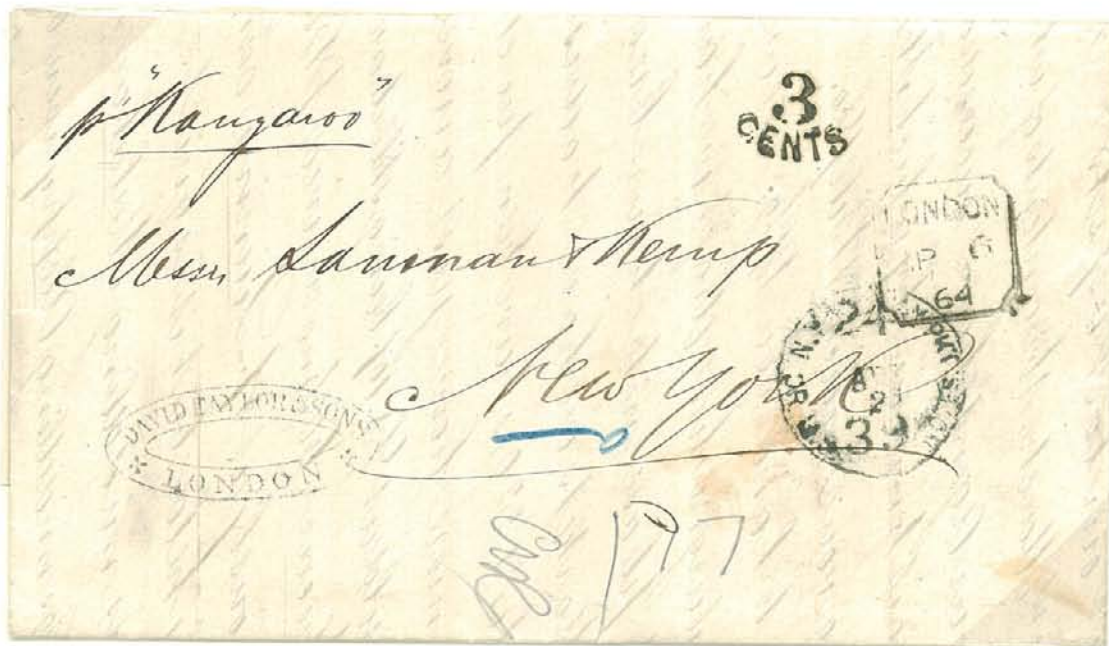 p "Kangaroo"
3
CENTS
LONDON
64
Messrs Lanman & Kemp
New York
24
N.Y.
39
DAVID TAYLOR & SONS
LONDON